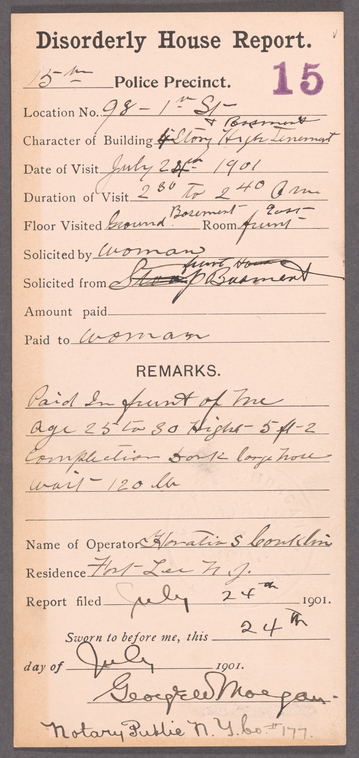 Disorderly House Report.
15th Police Precinct. 15
Location No. 98 - 1st St
& Basement
Character of Building 4 Story High Tenement
Date of Visit July 24th 1901
Duration of Visit 2 30 To 2 40 Am
Floor Visited Ground Basement Room East front
Solicited by woman
front House
Solicited from Stoop Basment
Amount paid
Paid to woman
REMARKS.
Paid In frunt of me
age 25 to 30 Hight - 5 ft - 2
Complection Dark large nose
wait - 120 lb
Name of Operator Horatio S Conklin
Residence Fort Lee N. J.
Report filed July 24th 1901.
Sworn to before me, this 24th
day of July 1901.
George W Morgan.
Notary Public N. Y. Co # 177.